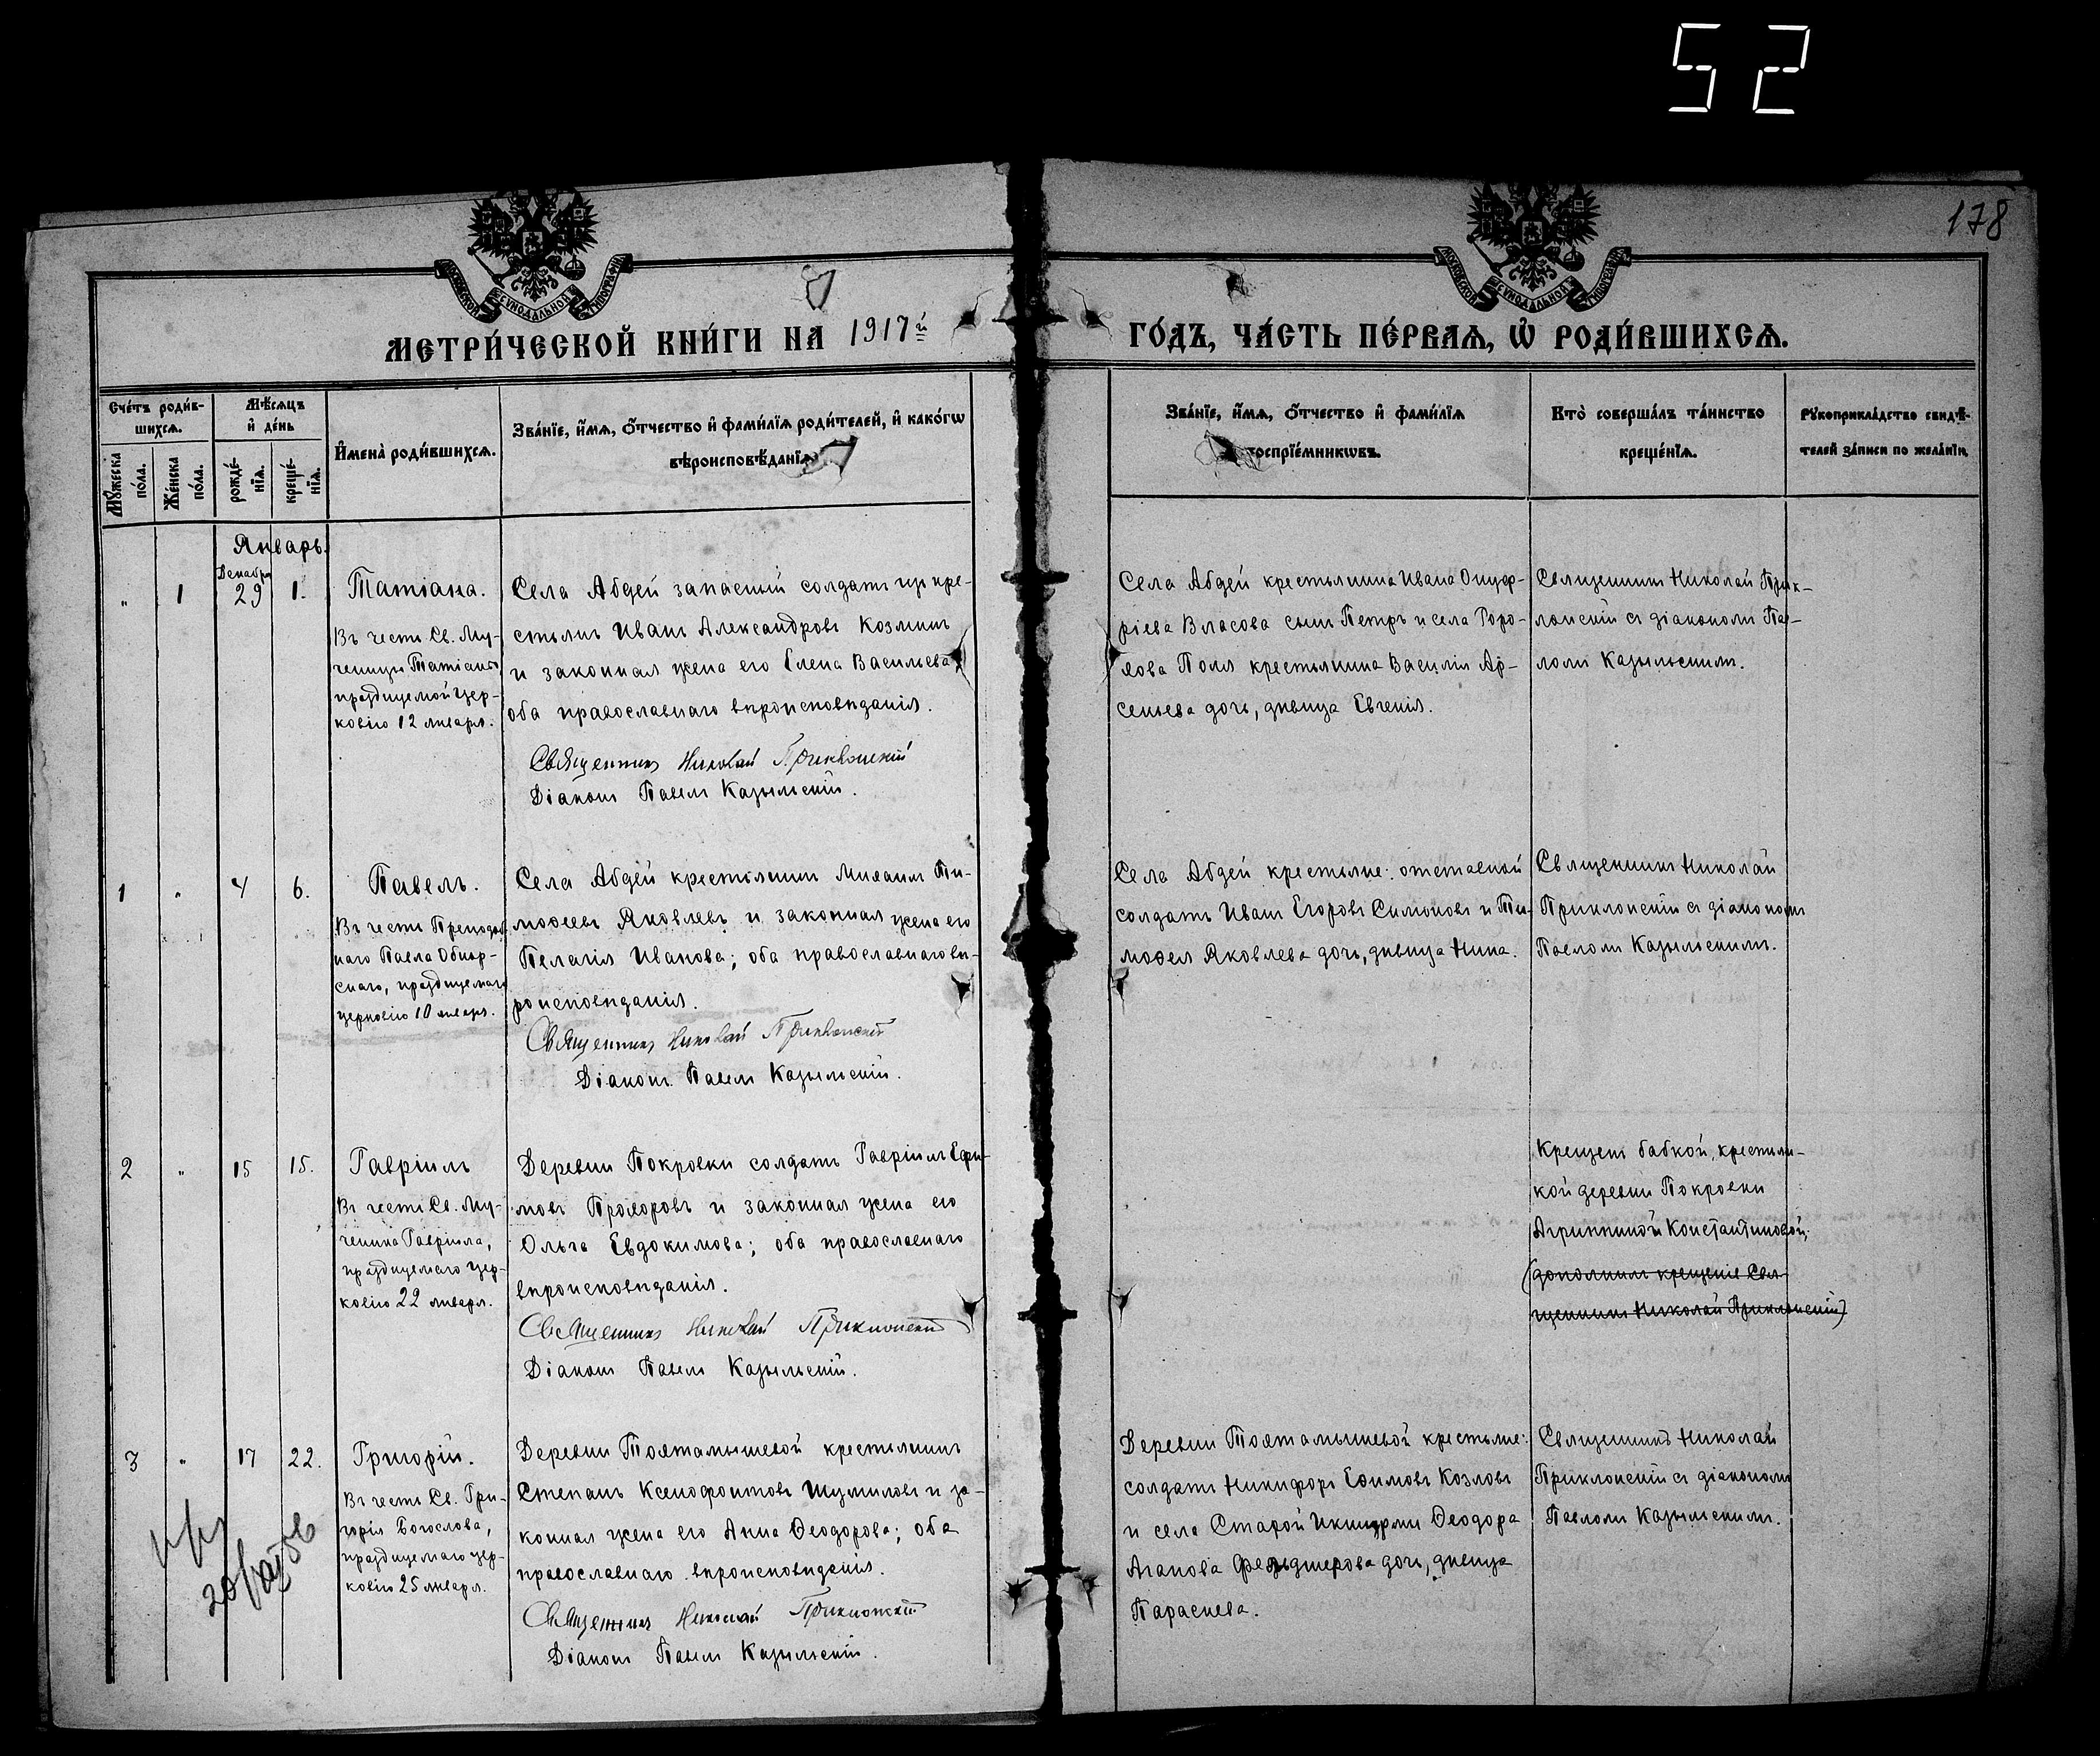 52
178
МОСКОВСКОЙ СѴНОДАЛЬНОЙ ТИПОГРАФІИ
МОСКОВСКОЙ СѴНОДАЛЬНОЙ ТИПОГРАФІИ
МЕТРИ́ЧЕСКОЙ КНИ́ГИ НА 1917й
ГО́ДЪ, ЧА́СТЬ ПЕ́РВАѦ, Ѡ҆ РОДИ́ВШИХСѦ.
Сче́тъ роди́в-
шихсѧ.
Мꙋ́жеска по́ла.
Же́нска по́ла.
Мѣ́сѧцъ
и҆ де́нь
рожде́-
нїѧ.
креще́-
нїѧ.
И҆мена̀ роди́вшихсѧ.
Зва́нїе, и҆́мѧ, ѻ҆́тчество и҆ фами́лїѧ роди́телей, и҆ како́гѡ
вѣроисповѣ́данїѧ
Зва́нїе, и҆́мѧ, ѻ҆́тчество и҆ фами́лїѧ
воспрїе́мникѡвъ.
Кто̀ соверша́лъ та́инство
креще́нїѧ.
Рꙋкоприкла́дство свидѣ́-
телей за́писи по жела́нїю
Январь.
Декабря
" 1 29 1.
Татіана.
Въ честь Св. Му-
ченицы Татіаны,
празднуемой цер-
ковію 12 января.
Села Абдей запасный солдатъ изъ кре-
стьянъ Иванъ Александровъ Козминъ
и законная жена его Елена Васильева,
оба православнаго вѣроисповѣданія.
Священникъ Николай Приклонскій
Діаконъ Павелъ Казыльскій.
Села Абдей крестьянина Ивана Онуф-
ріева Власова сынъ Петръ и села Горо-
хова Поля крестьянина Василія Ар-
сеньева дочь, дѣвица Евгенія.
Священникъ Николай Прик-
лонскій съ діакономъ Пав-
ломъ Казыльскимъ.
1 " 4 6.
Павелъ.
Въ честь Преподоб-
наго Павла Обнор-
скаго, празднуемаго
церковію 10 января.
Села Абдей крестьянинъ Михаилъ Ти-
моѳеевъ Яковлевъ и законная жена его
Пелагія Иванова; оба православнаго вѣ-
роисповѣданія.
Священникъ Николай Приклонскій
Діаконъ Павелъ Казыльскій.
Села Абдей крестьяне: отставной
солдатъ Иванъ Егоровъ Симоновъ и Ти-
моѳея Яковлева дочь, дѣвица Нина.
Священникъ Николай
Приклонскій съ діакономъ
Павломъ Казыльскимъ.
2 " 15 15.
Гавріилъ
Въ честь Св. Му-
ченика Гавріила,
празднуемаго цер-
ковію 22 января.
Деревни Покровки солдатъ Гавріилъ Ефи-
мовъ Прохоровъ и законная жена его
Ольга Евдокимова; оба православнаго
вѣроисповѣданія.
Священникъ Николай Приклонскій
Діаконъ Павелъ Казыльскій.
Крещенъ бабкой, крестьян-
кой деревни Покровки
Агриппиной Константиновой;
(дополнилъ крещеніе Свя-
щенникъ Николай Приклонскій)
3 " 17 22.
Григорій.
Въ честь Св. Гри-
горія Богослова,
празднуемаго цер-
ковію 25 января.
Деревни Тохтамышевой крестьянинъ
Степанъ Ксенофонтовъ Шумиловъ и за-
конная жена его Анна Ѳеодорова; оба
православнаго вѣроисповѣданія.
Священникъ Николай Приклонскій
Діаконъ Павелъ Казыльскій.
Деревни Тохтамышевой крестьяне:
солдатъ Никифоръ Ефимовъ Козловъ
и села Старой Икшурмы Ѳеодора
Агапова Фельдшерова дочь, дѣвица
Параскева.
Священникъ Николай
Приклонскій съ діакономъ
Павломъ Казыльскимъ.